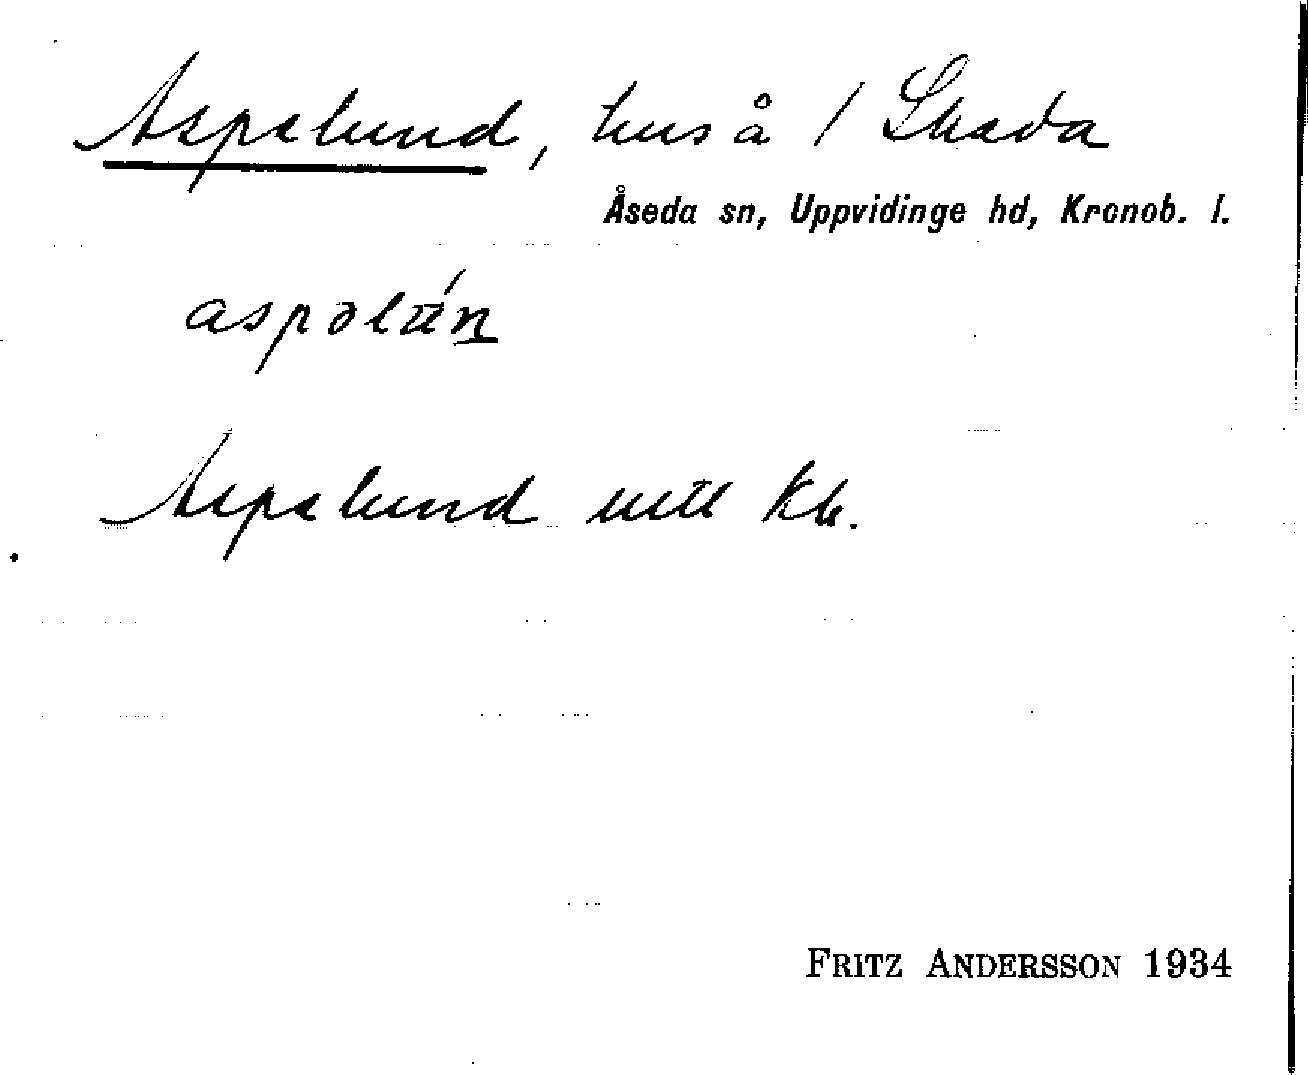 Aspelund, hus å 1 Skada
Åseda sn, Uppvidinge hd, Kronob. l.
aspəlún
Aspelund utt Kb.
FRITZ ANDERSSON 1934